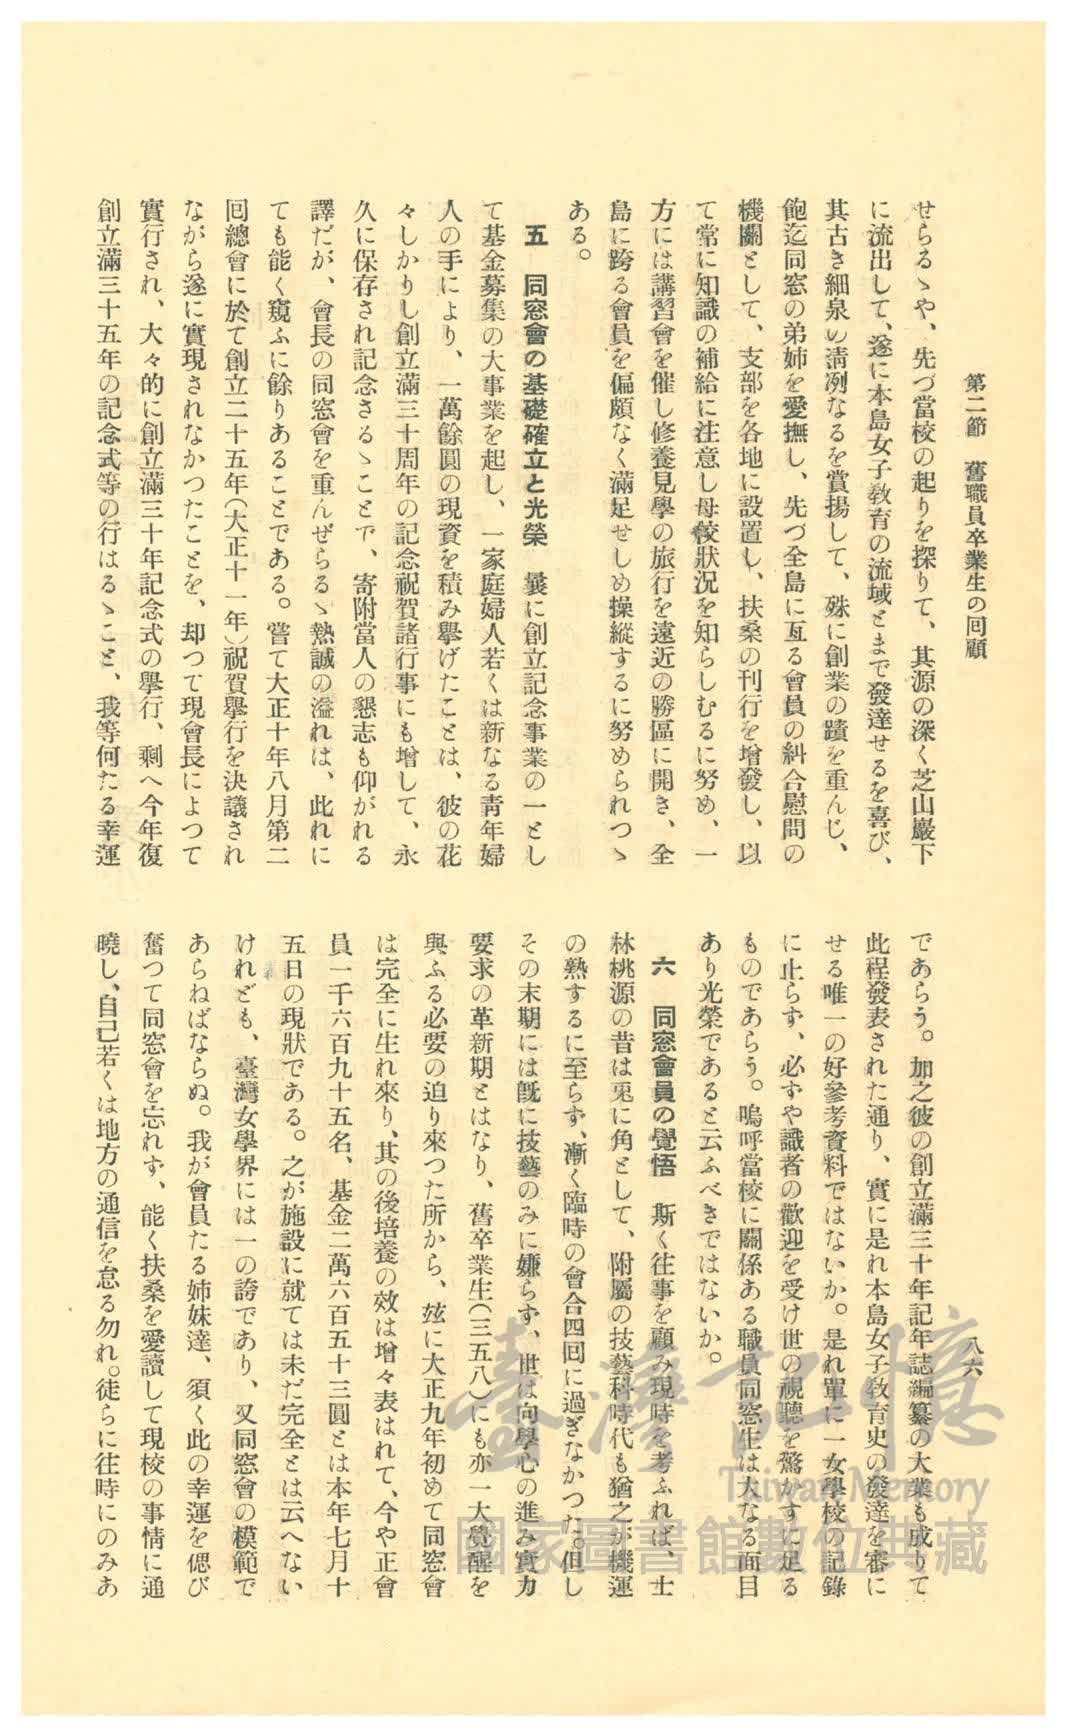 第二節　舊職員卒業生の回顧
八六
せらるゝや、先づ當校の起りを探りて、其源の深く芝山巖下
に流出して、遂に本島女子敎育の流域とまで發達せるを喜び、
其古き細泉の淸冽なるを賞揚して、殊に創業の蹟を重んじ、
飽迄同窓の弟姉を愛撫し、先づ全島に亙る會員の糾合慰問の
機關として、支部を各地に設置し、扶桑の刊行を增發し、以
て常に知識の補給に注意し母校狀況を知らしむるに努め、一
方には講習會を催し修養見學の旅行を遠近の勝區に開き、全
島に跨る會員を偏頗なく滿足せしめ操縱するに努められつゝ
ある。
五　同窓會の基礎確立と光榮　曩に創立記念事業の一とし
て基金募集の大事業を起し、一家庭婦人若くは新なる靑年婦
人の手により、一萬餘圓の現資を積み擧げたことは、彼の花
々しかりし創立滿三十周年の記念祝賀諸行事にも增して、永
久に保存され記念さるゝことで、寄附當人の懇志も仰がれる
譯だが、會長の同窓會を重んぜらるゝ熱誠の溢れは、此れに
ても能く窺ふに餘りあることである。嘗て大正十年八月第二
回總會に於て創立二十五年（大正十一年）祝賀擧行を決議され
ながら遂に實現されなかつたことを、却つて現會長によつて
實行され、大々的に創立滿三十年記念式の擧行、剩へ今年復
創立滿三十五年の記念式等の行はるゝこと、我等何たる幸運
であらう。加之彼の創立滿三十年記年誌編纂の大業も成りて
此程發表された通り、實に是れ本島女子敎育史の發達を審に
せる唯一の好參考資料ではないか。是れ單に一女學校の記錄
に止らず、必ずや識者の歡迎を受け世の視聽を驚かすに足る
ものであらう。嗚呼當校に關係ある職員同窓生は大なる面目
あり光榮であると云ふべきではないか。
六　同窓會員の覺悟　斯く往事を顧み現時を考ふれば、士
林桃源の昔は兎に角として、附屬の技藝科時代も猶之が機運
の熟するに至らず、漸く臨時の會合四回に過ぎなかつた。但し
その末期には既に技藝のみに嫌らず、世は向學心の進み實力
要求の革新期とはなり、舊卒業生（三五八）にも亦一大覺醒を
與ふる必要の迫り來つた所から、玆に大正九年初めて同窓會
は完全に生れ來り、其の後培養の效は增々表はれて、今や正會
員一千六百九十五名、基金二萬六百五十三圓とは本年七月十
五日の現狀である。之が施設に就ては未だ完全とは云へない
けれども、臺灣女學界には一の誇であり、又同窓會の模範で
あらねばならぬ。我が會員たる姉妹達、須く此の幸運を偲び
奮つて同窓會を忘れず、能く扶桑を愛讀して現校の事情に通
曉し、自己若くは地方の通信を怠る勿れ。徒らに往時にのみあ
臺灣記憶
Taiwan Memory
國家圖書館數位典藏